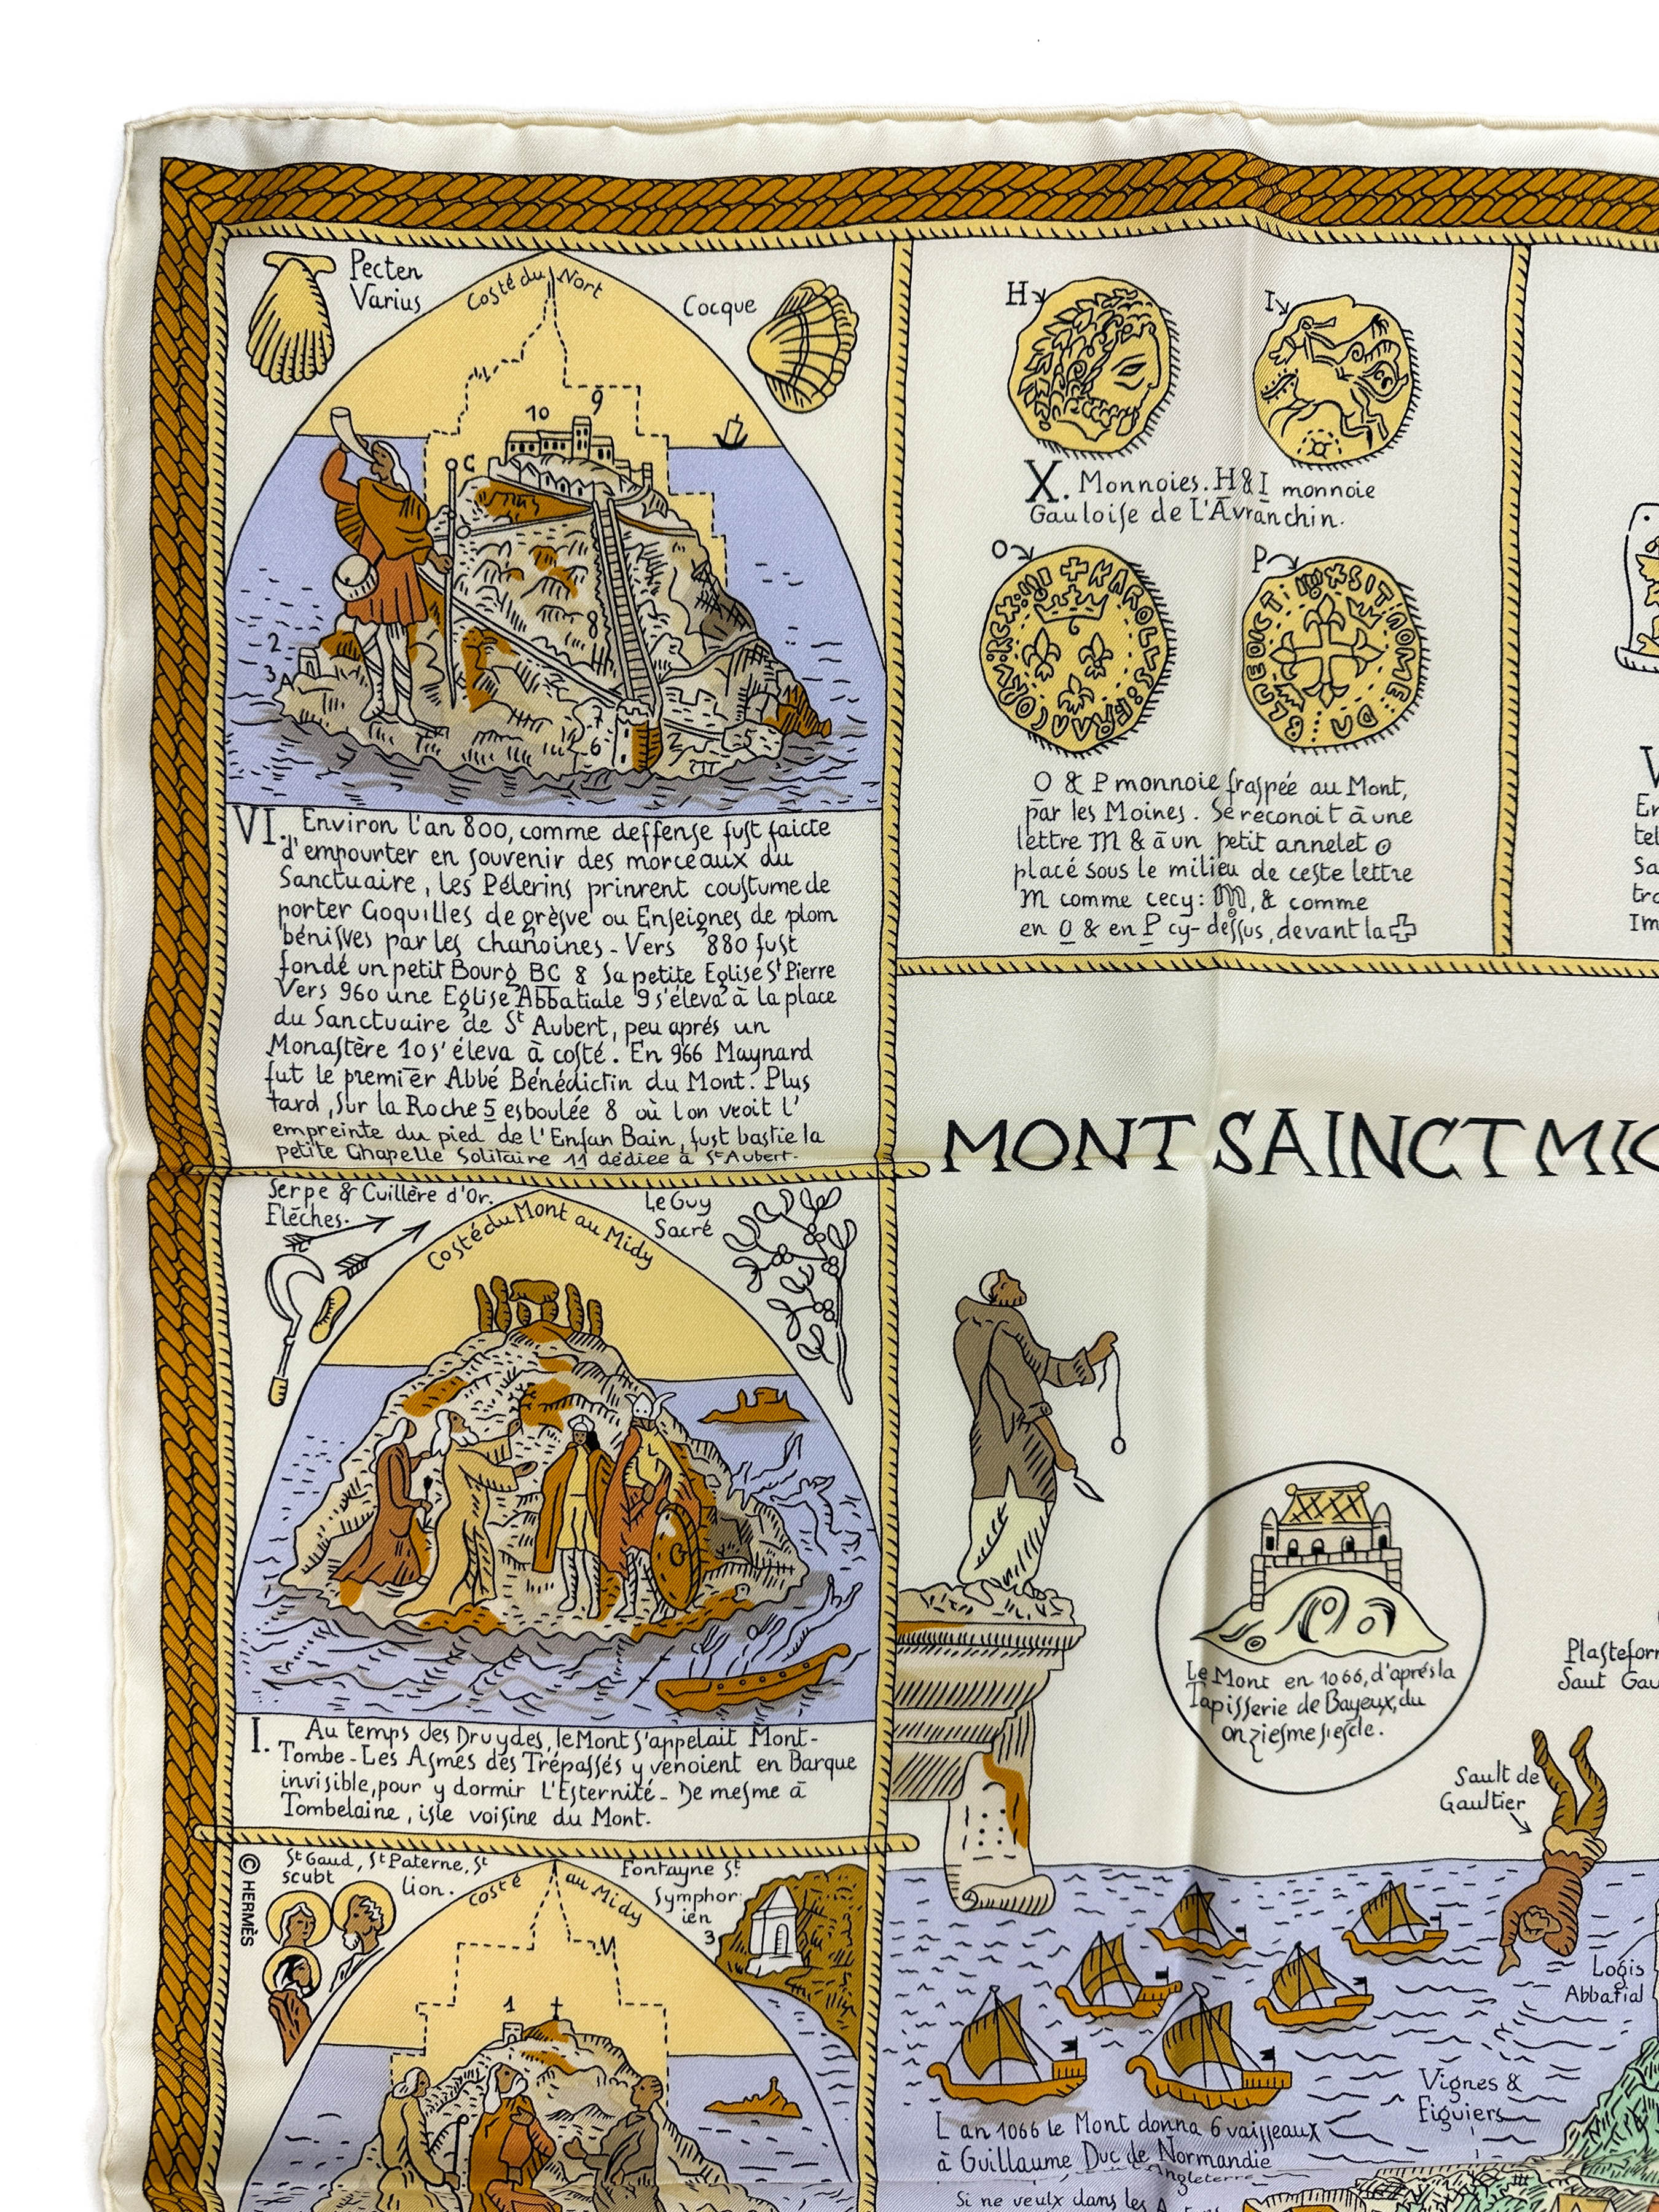 Pecten
Varius
Costé du Nort
Cocque
10
9
C
8
2
3
A
7
6
5
11
VI. Environ l'an 800, comme deffense fust faicte
d'empourter en souvenir des morceaux du
Sanctuaire, les Pélerins prinrent coustume de
porter Goquilles de grèsve ou Enseignes de plom
bénisves par les chanoines - Vers 880 fust
fondé un petit Bourg BC & Sa petite Eglise St Pierre
Vers 960 une Eglise Abbatiale 9 s'éleva à la place
du Sanctuaire de St Aubert, peu aprés un
Monastère 10 s'éleva à costé. En 966 Maynard
fut le premier Abbé Bénédictin du Mont. Plus
tard, sur la Roche 5 esboulée 8 où lon veoit l'
empreinte du pied de l'Enfan Bain, fust bastie la
petite Chapelle Solitaire 11 dédiée à St Aubert.
H
I
X. Monnoies. H & I monnoie
Gauloise de L'Avranchin.
O
P
O & P monnoie frappée au Mont,
par les Moines. Se reconoit à une
lettre M & à un petit annelet o
placé sous le milieu de ceste lettre
M comme cecy: M, & comme
en O & en P cy-dessus, devant la ✚
MONT SAINCT MIC
Serpe & Cuillère d'Or.
Flêches.
Costé du Mont au Midy
Le Guy
Sacré
I. Au temps des Druydes, le Mont s'appelait Mont-
Tombe - Les Asmes des Trépassés y venoient en Barque
invisible, pour y dormir L'Esternité - De mesme à
Tombelaine, isle voisine du Mont.
Le Mont en 1066, d'aprés la
Tapisserie de Bayeux, du
onziesme siescle.
Plasteform
Saut Gau
Sault de
Gaultier
© HERMÈS
St Gaud, St Paterne, St
scubt
lion.
costé au Midy
Fontayne St
Symphor:
ien
3
M
1
Logis
Abbatial
Vignes &
Figuiers
L an 1066 le Mont donna 6 vaisseaux
à Guillaume Duc de Normandie
Angleterre
Si ne veulx dans les